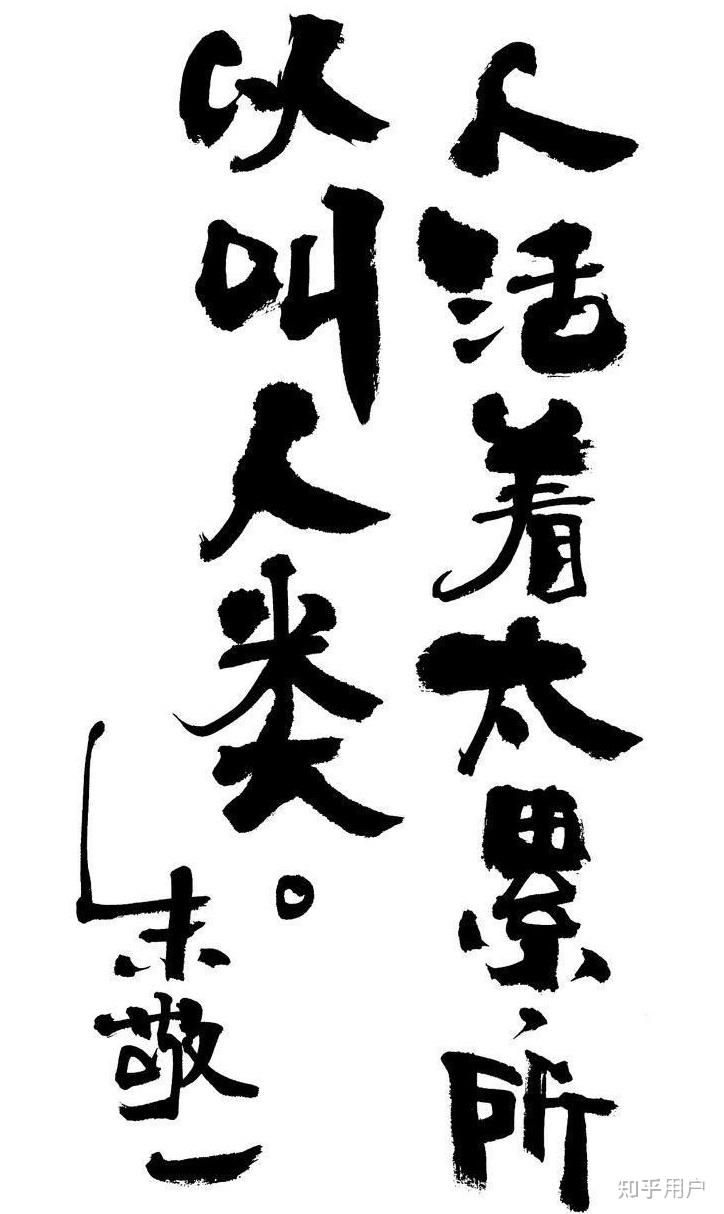 人活着太累、所
以叫人类。
朱敬一
知乎用户